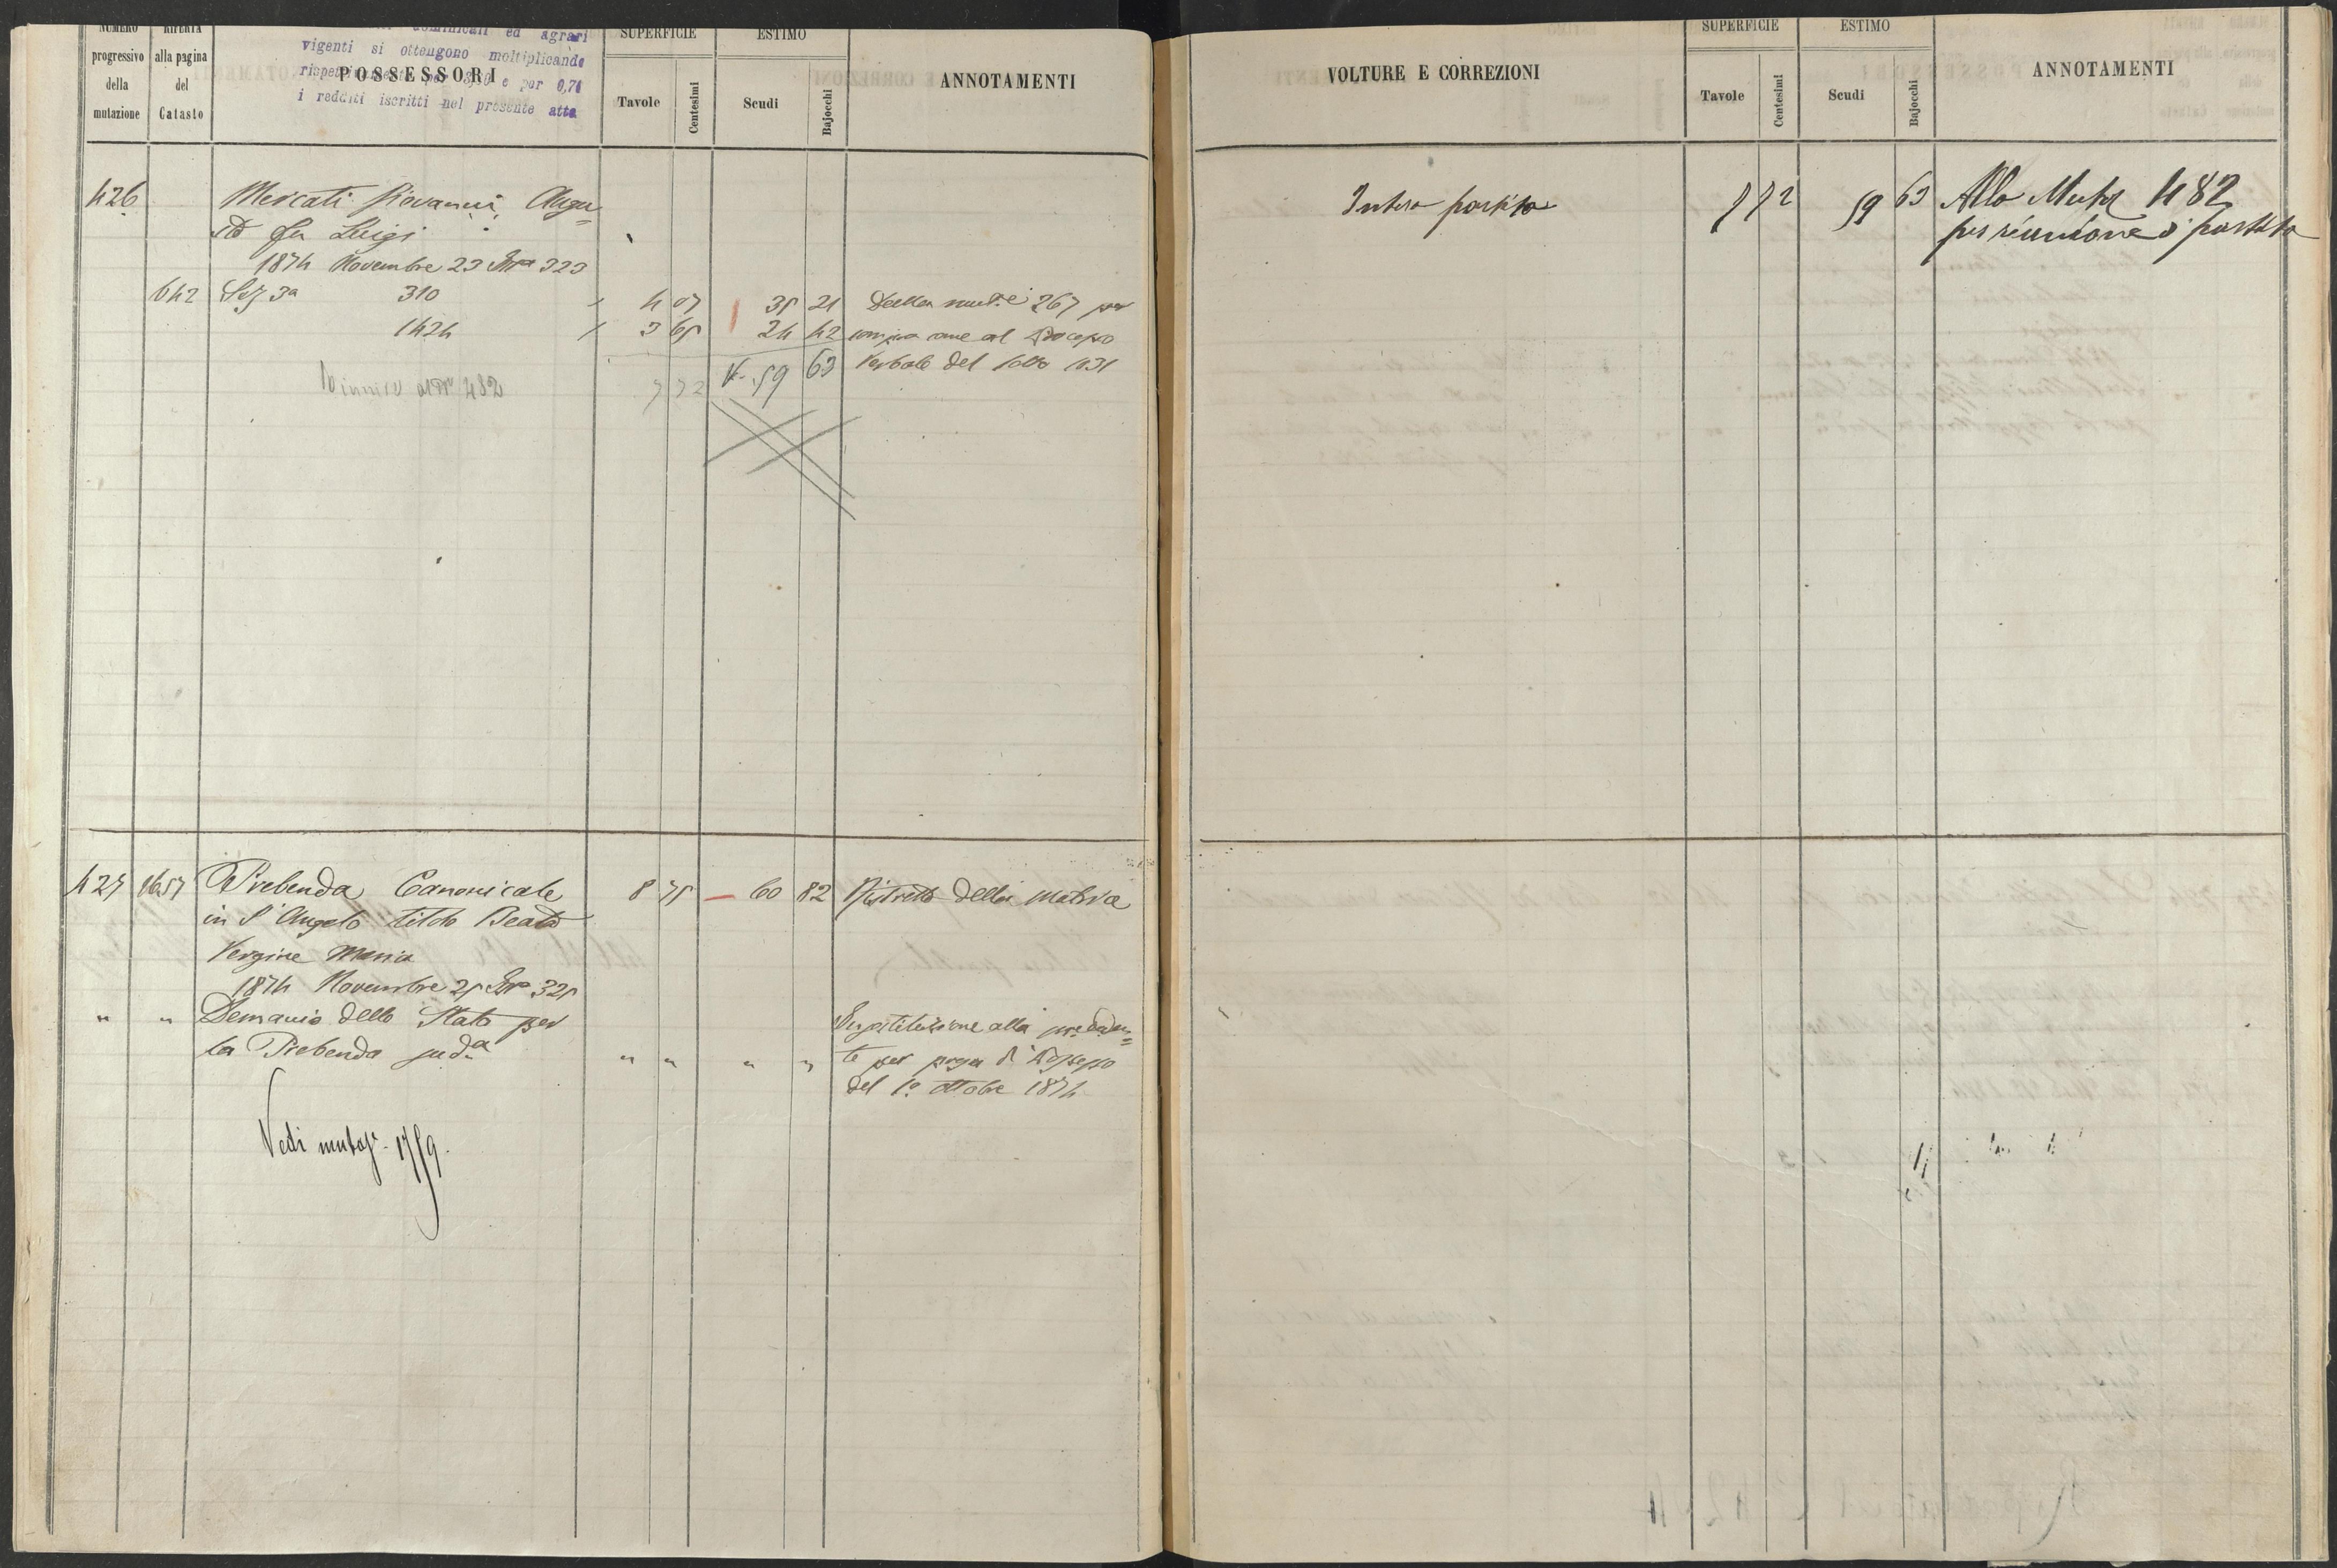 NUMERO progressivo della mutazione
RIFERTA alla pagina del Catasto
POSSESSORI
dominicali ed agrari
vigenti si ottengono moltiplicando
rispettivamente per e per 0,71
i redditi iscritti nel presente atto
SUPERFICIE
Tavole Centesimi
ESTIMO
Scudi Bajocchi
ANNOTAMENTI
426 Mercati Giovanni, Augu=
sto fu Luigi
1874 Novembre 23 323
642 Sez 3a 310 4 07 35 21 Dalla mut.e 267 per
1424 3 65 24 42 al Processo
59 63 Verbale del 1031
7 72
482
427 1657 Prebenda Canonicale 8 75 60 82 Ristretto della Matrice
in S. Angelo titolo Beata
Vergine Maria
1874 Novembre 25 325
" " Demanio dello Stato per
la Prebenda sudª " " " "
Sostituzione alla preceden=
te per presa di Possesso
del 1º ottobre 1874
Vedi mutaz. 1759.
VOLTURE E CORREZIONI
SUPERFICIE
Tavole Centesimi
ESTIMO
Scudi Bajocchi
ANNOTAMENTI
Intera partita 7 72 59 63 Alla Mutaz 482
per riunione di partita